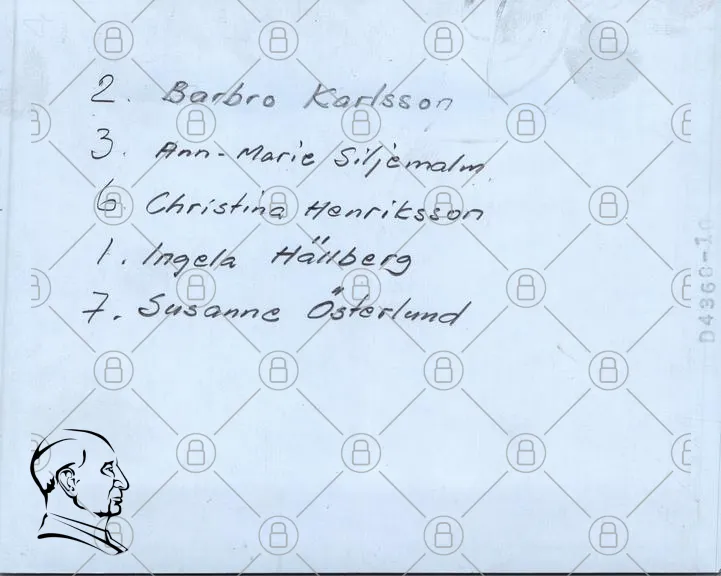 2. Barbro Karlsson
3. Ann-Marie Siljemalm
6 Christina Henriksson
1. Ingela Hällberg
7. Susanne Österlund